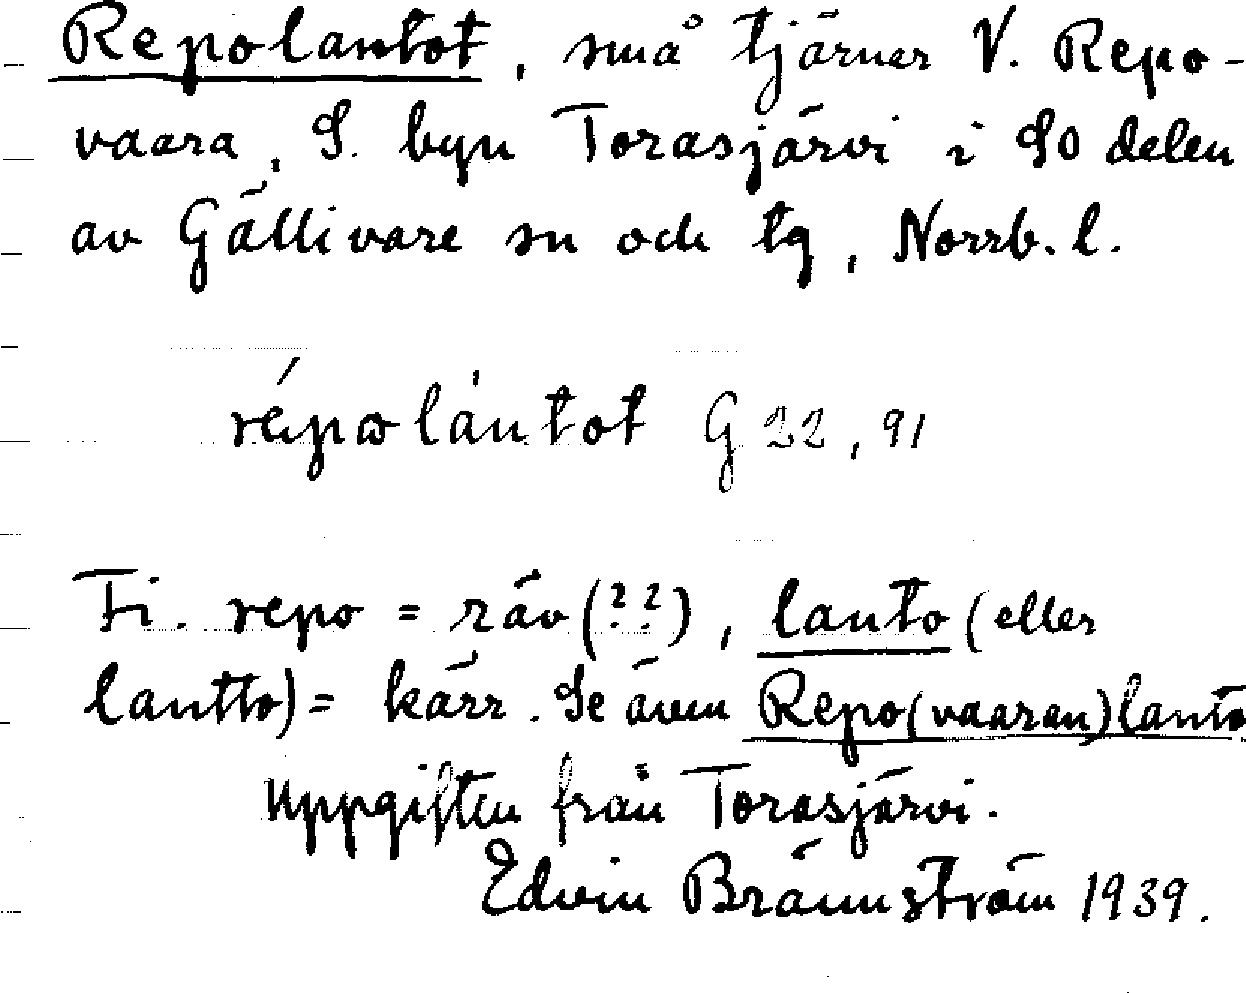 Repolantot, små tjärner V. Repo-
vaara, S. byn Torasjärvi i SO delen
av Gällivare sn och tg, Norrb. l.
répωlàntot G 22, 91
Fi. repo = räv (??), lanto (eller
lantto) = kärr. Se även Repo(vaaran)lanto
Uppgiften från Torasjärvi.
Edvin Brännström 1939.